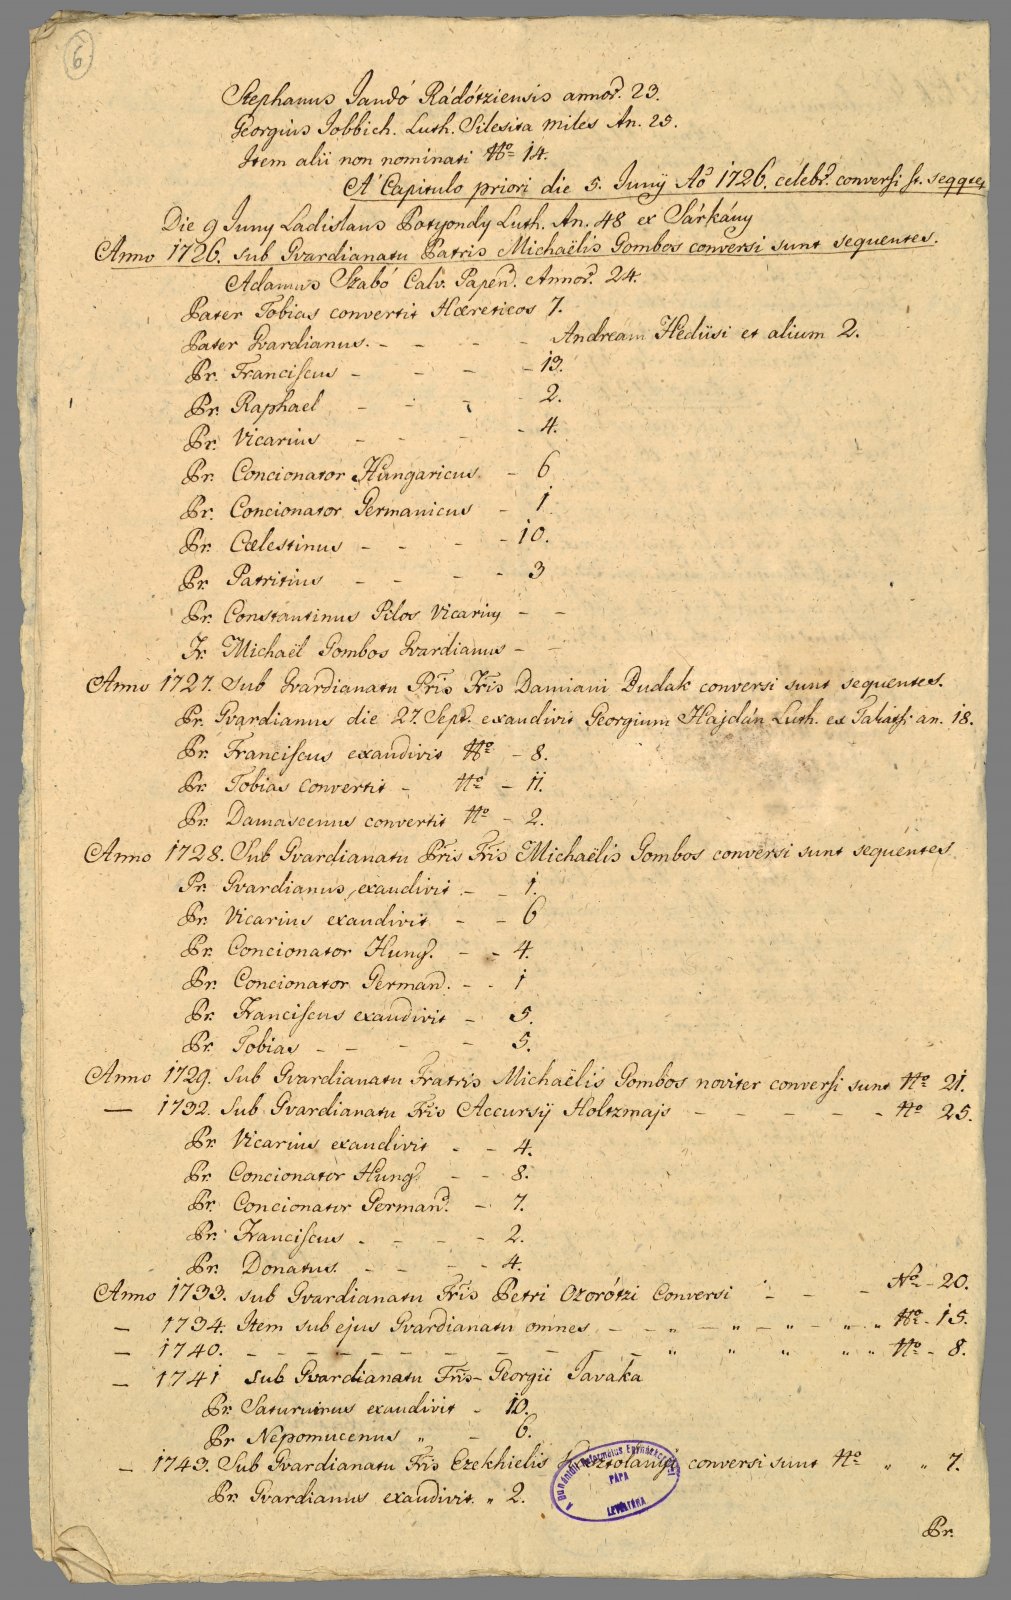 6
Stephanus Jandó Rádótziensis annor. 23.
Georgius Jobbich. Luth. Silesita miles An. 25.
Item alii non nominati No 14.
A Capitulo priori die 5. Junÿ Ao 1726. celebr. conversi st. seqqtes
Die 9 Juny Ladislaus Patyondy Luth. An. 48 ex Sárkány
Anno 1726. sub Gvardianatu Patris Michaëlis Gombos conversi sunt sequentes.
Adamus Szabó Calv. Papen. Annor. 24.
Pater Tobias convertit Hæreticos 7.
Pater Gvardianus. - - - - Andream Hedüsi et alium 2.
Pr. Franciscus - - - - 13.
Pr. Raphael - - - - 2.
Pr. Vicarius - - - - 4.
Pr. Concionator Hungaricus. - 6
Pr. Concionator Germanicus - 1
Pr. Cœlestinus - - - - 10.
Pr. Patritius - - - - 3
Pr. Constantinus Pilos Vicariq - -
Fr. Michaël Gombos Gvardianus - -
Anno 1727. Sub Gvardianatu Pris Fris Damiani Dudak conversi sunt sequentes.
Pr. Gvardianus die 27. Sept. exaudivit Georgium Hajdán Luth. ex Takátsi an. 18.
Pr. Franciscus exaudivit No - 8.
Pr. Tobias convertit - No - 11.
Pr. Damascenus convertit No - 2.
Anno 1728. Sub Gvardianatu Pris Fris Michaëlis Gombos conversi sunt sequentes
Pr. Gvardianus exaudivit - - 1.
Pr. Vicarius exaudivit - - 6
Pr. Concionator Hung. - - 4.
Pr. Concionator German. - - 1
Pr. Franciscus exaudivit - 5.
Pr. Tobias - - - - 5.
Anno 1729. Sub Gvardianatu Fratris Michaëlis Gombos noviter conversi sunt No 21.
— 1732. Sub Gvardianatu Fris Accursÿ Holtzmajs - - - - - No 25.
Pr. Vicarius exaudivit - - 4.
Pr. Concionator Hung. - - 8.
Pr. Concionator German. - 7.
Pr. Franciscus - - - - 2.
Pr. Donatus. - - - - 4.
Anno 1733. sub Gvardianatu Fris Petri Ozorótzi Conversi - - - No - 20.
— 1734. Item sub ejus Gvardianatu omnes - - „ - „ - „ - „ „ No - 15.
— 1740. - - - - - - - - - „ „ „ „ „ No - 8.
— 1741 sub Gvardianatu Fris - Georgii Javaka
Pr. Saturninus exaudivit - 10.
Pr Nepomucenus „ - 6.
— 1743. Sub Gvardianatu Fris Ezekhielis Kosztolányi conversi sunt No „ „ 7.
Pr. Gvardianus exaudivit „ 2.
A Dunántúli Református Egyházkerület
PÁPA
LEVÉLTÁRA
Pr.